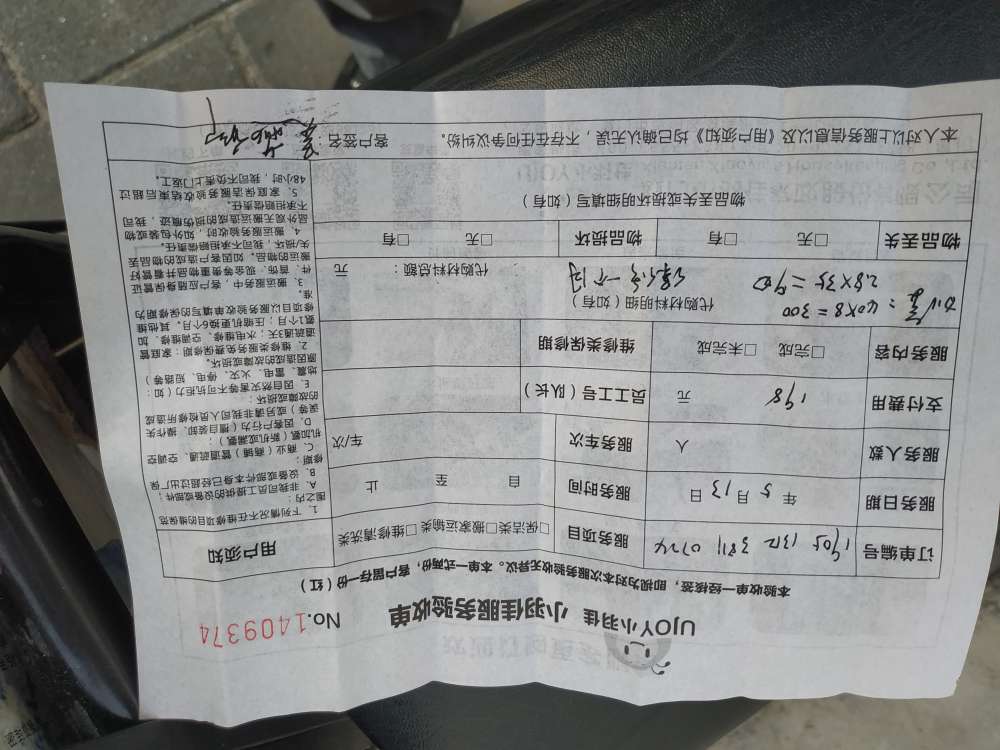 UJOY小羽佳 小羽佳服务验收单 No.1409374
本验收单一经核签，即视为对本次服务验收无异议。本单一式两份，客户留存一份（红）
订单编号 服务项目 □保洁类□搬家运输类□维修清洗类
服务日期 年 5 月 13 日 服务时间 自 至 止
服务人数 人 服务车次 车/次
支付费用 198 元 员工工号（队长）
服务内容 □完成 □未完成 维修类保修期
40×8=300
2.8×35=
代购材料明细（如有）
代购材料总额： 元
物品丢失 □无 □有 物品损坏 □无 □有
物品丢失或损坏明细填写（如有）
本人对以上服务信息以及《用户须知》均已确认无误，不存在任何争议纠纷。 客户签名：
用户须知
1. 下列情况不在维修项目的维保范
围之内：
A. 非我司员工提供的设备或部件；
B. 设备或部件本身已经超过出厂保
修期；
C. 商业（商铺）管道疏通、空调空
机加氨（新机或漏氨）；
D. 因客户行为（擅自装卸、操作失
误等）或另请非我司人员检修所造成
的故障或损坏；
E. 因自然灾害等不可抗力（如：
地震、雷电、火灾、停电、短路等）
原因造成的故障或损坏。
2. 维修类服务免费保修期：家庭管
道疏通3天；水电维修、空调维修、加
氨1个月；压缩机更换6个月，其他维
修项目以服务验收单填写的保修期为
准。
3. 搬运服务中，客户应随身保管证
件、首饰、现金等贵重物品并看管好
搬运的物品，如因客户造成的物品丢
失/损坏，我司不承担赔偿责任。
4. 搬运服务验收时，如外包装或物
品外观无搬运造成的损伤痕迹，我司
不承担赔偿责任。
5. 家庭保洁服务验收结束后超过
48小时，我司不负责上门返工。